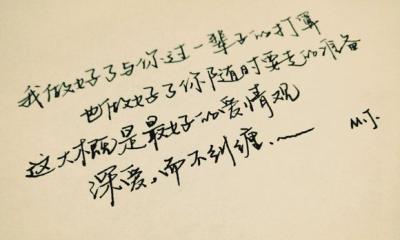 我做好了与你过一辈子的打算
也做好了你随时要走的准备
这大概是最好的爱情观
深爱,而不纠缠.~
M.J.